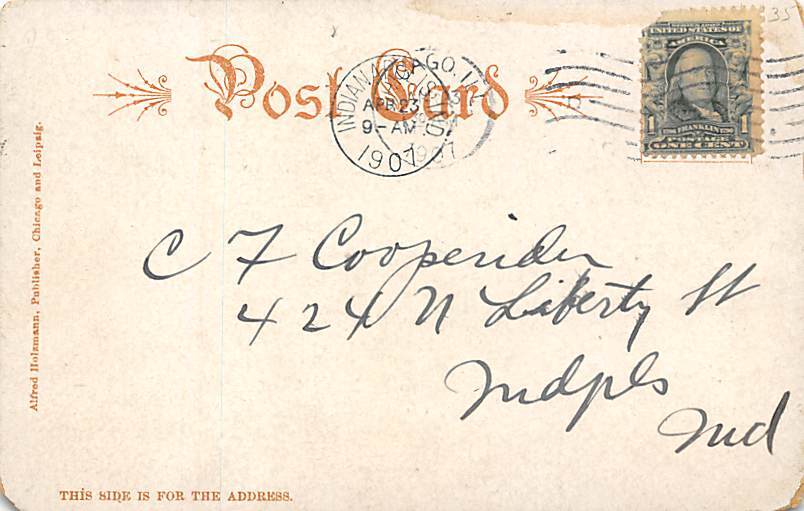 35
SERIES 1902
UNITED STATES OF
AMERICA
1 FRANKLIN 1
ONE CENT
Post Card
CHICAGO, ILL.
1907
INDIANAPOLIS, IND.
APR 23
9-AM
1907
C F Cooperider
424 N Liberty St
Indpls
Ind
Alfred Holzmann, Publisher, Chicago and Leipzig.
THIS SIDE IS FOR THE ADDRESS.